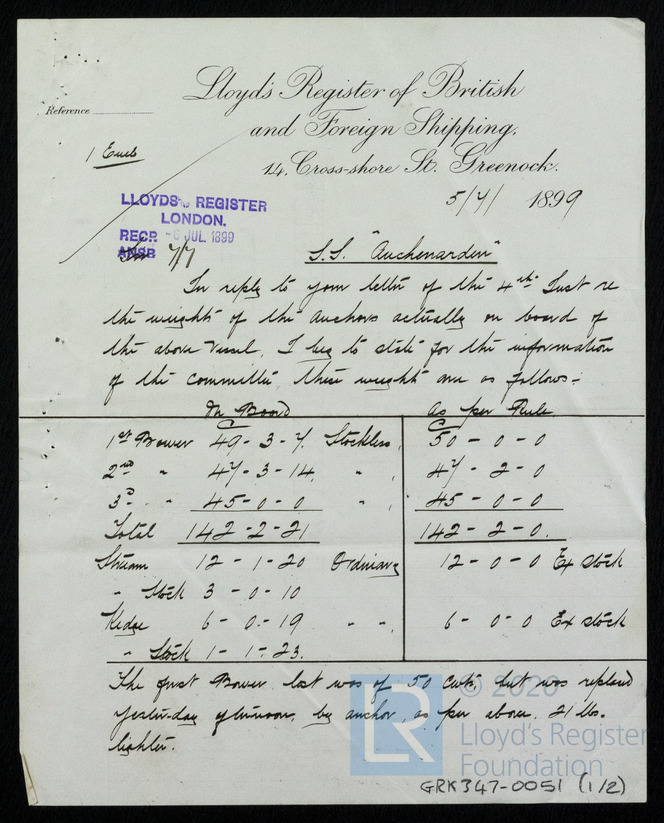 Lloyd's Register of British
and Foreign Shipping.
14, Cross-shore St. Greenock.
Reference
1 Encl
5/7/ 1899
LLOYDS REGISTER
LONDON.
RECD. -6 JUL 1899
ANSD 7/7
S.S. "Auchenarden"
In reply to your letter of the 4th Inst re
the weights of the anchors actually on board of
the above vessel, I beg to state for the information
of the committee, these weights are as follows:-
On Board As per Rule
C C
1st Bower 49-3-7. Stockless, 50-0-0
2nd " 47-3-14. " , 47-2-0
3d " 45-0-0 " , 45-0-0
Total 142-2-21 142-2-0.
Stream 12-1-20 Ordinary 12-0-0 Ex stock
" Stock 3-0-10
Kedge 6-0-19 " ", 6-0-0 Ex stock
" Stock 1-1-23.
The first Bower lost was of 50 cwts but was replaced
yesterday afternoon, by anchor, as per above, 21 lbs.
lighter.
© 2020
LR
Lloyd's Register
Foundation
GRK347-0051 (1/2)